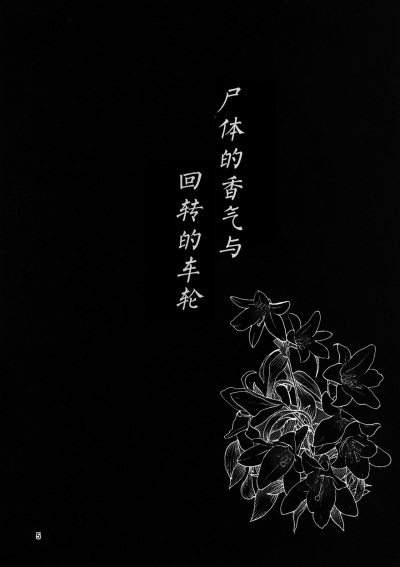 尸体的香气与
回转的车轮
5